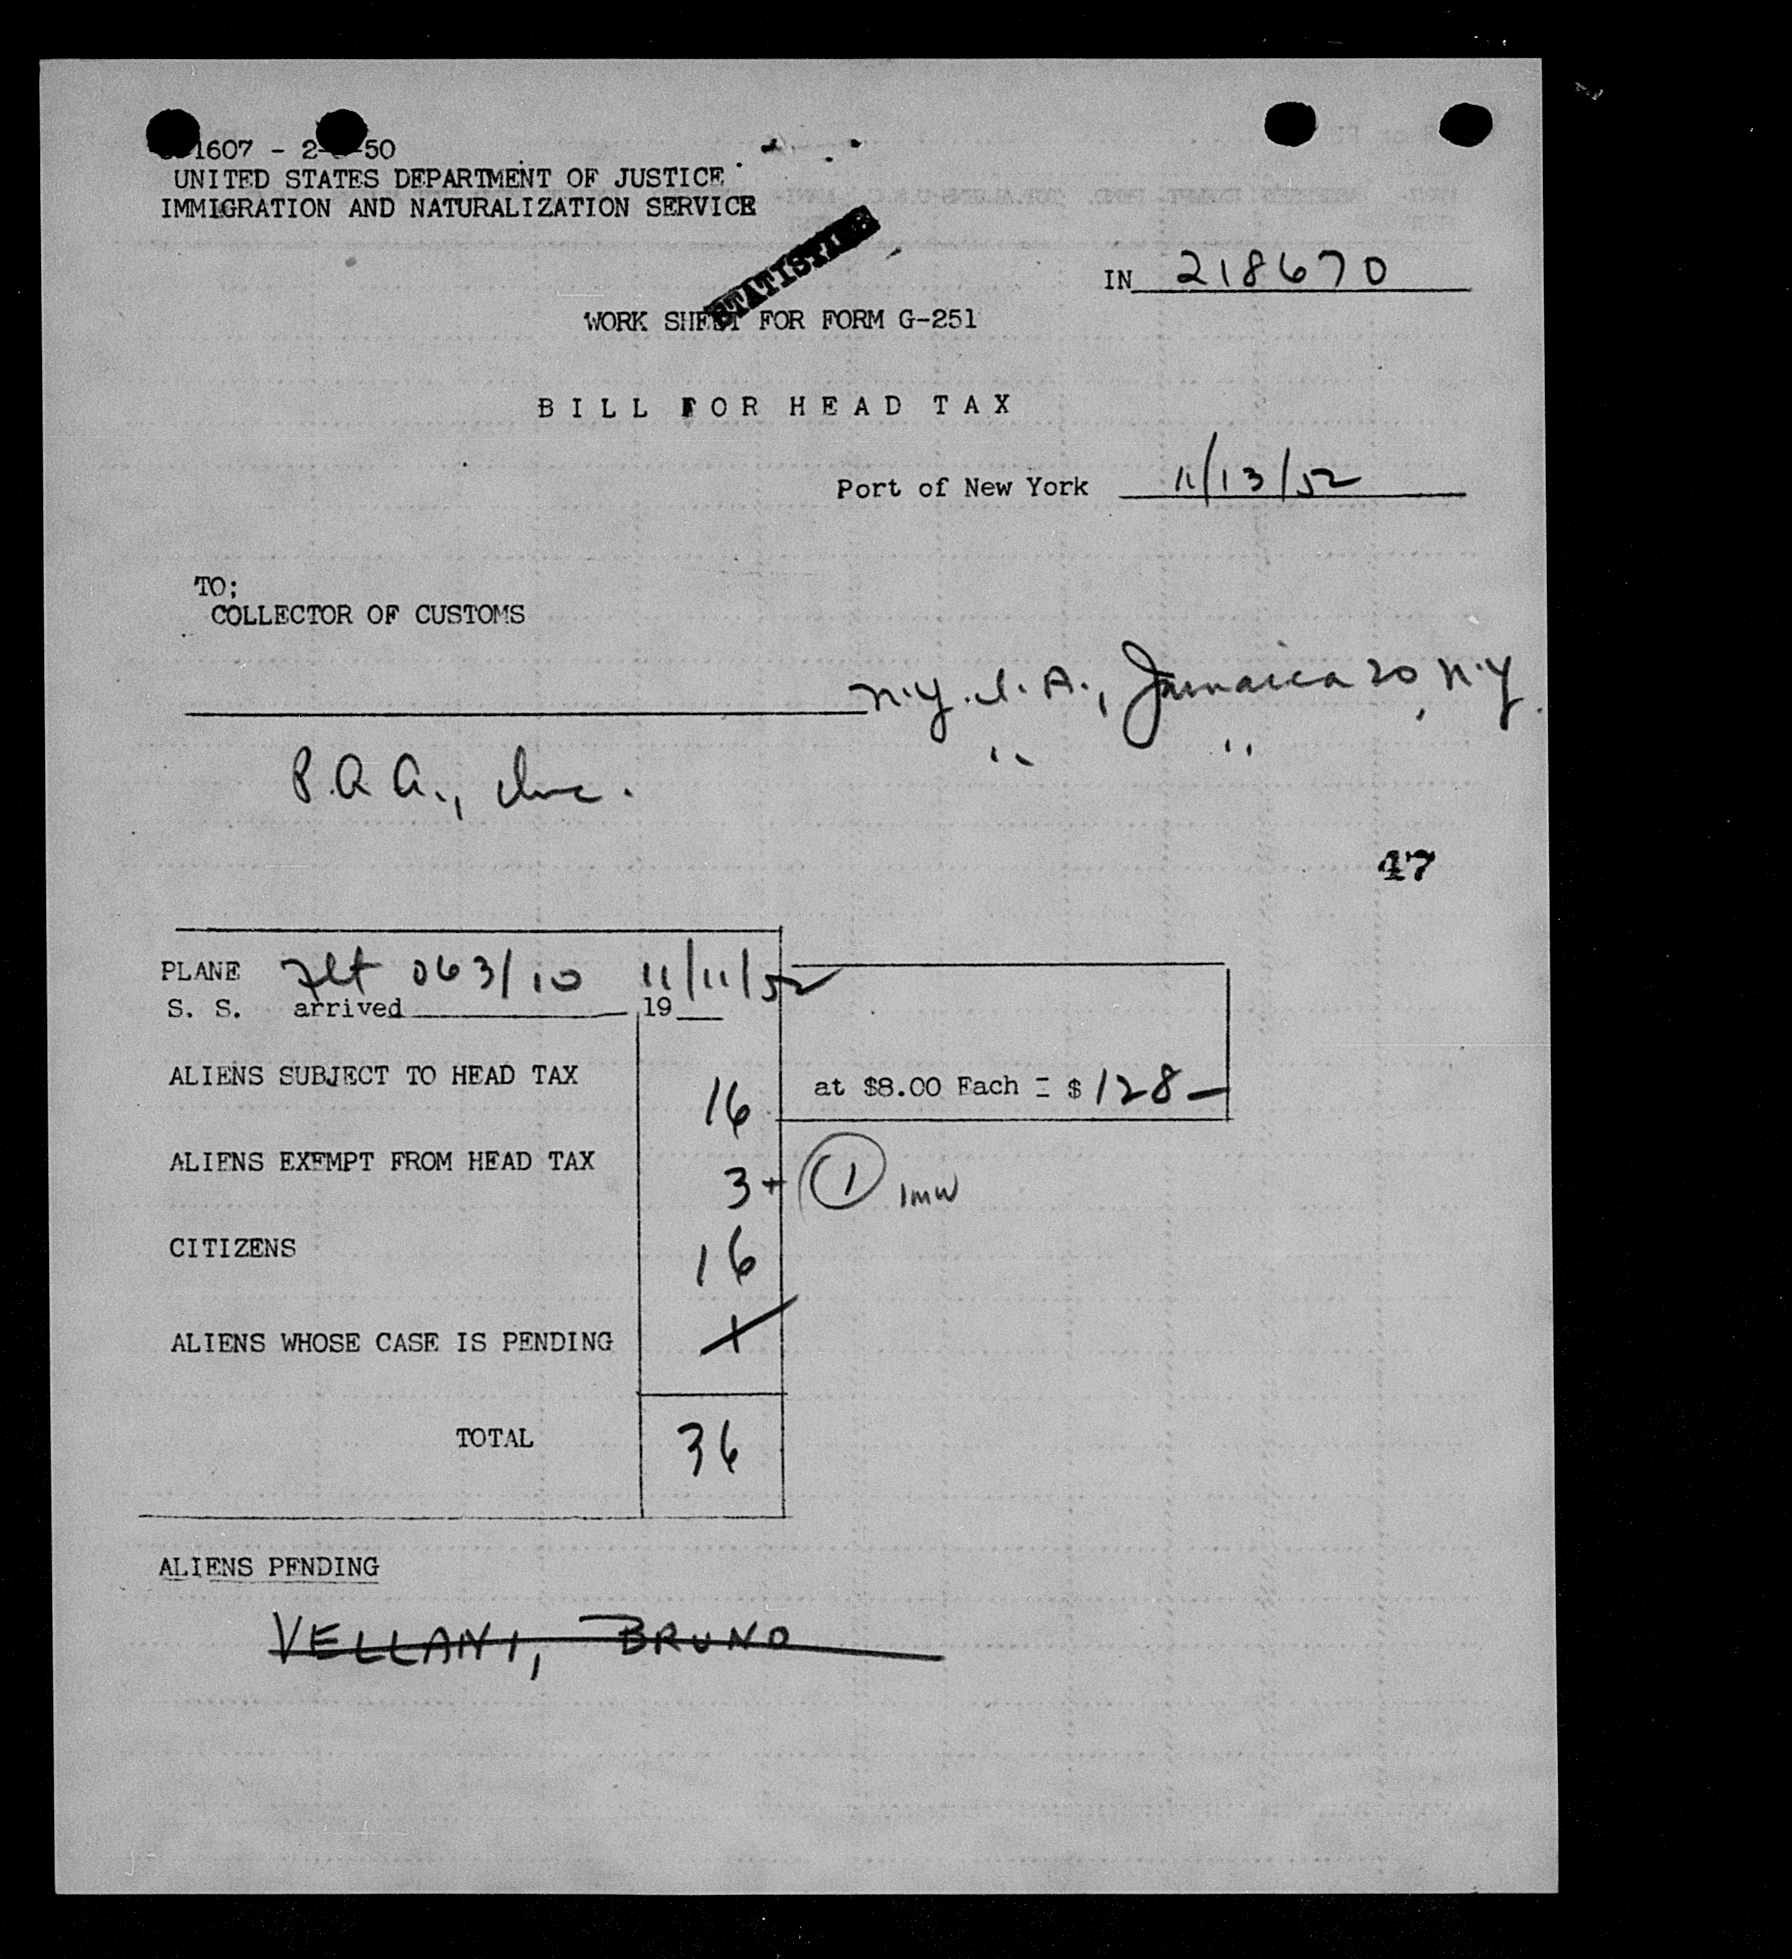 1607 - 2- -50
UNITED STATES DEPARTMENT OF JUSTICE
IMMIGRATION AND NATURALIZATION SERVICE
STATISTICS
IN 218670
WORK SHEET FOR FORM G-251
BILL FOR HEAD TAX
Port of New York 11/13/52
TO;
COLLECTOR OF CUSTOMS
N.Y.I.A., Jamaica 20, N.Y.
P.A.A., Inc. " "
47
PLANE Flt 063/10 11/11/52
S. S. arrived 19
ALIENS SUBJECT TO HEAD TAX 16 at $8.00 Each = $ 128-
ALIENS EXEMPT FROM HEAD TAX 3 + 1 1mw
CITIZENS 16
ALIENS WHOSE CASE IS PENDING 1
TOTAL 36
ALIENS PENDING
VELLANI, BRUNO